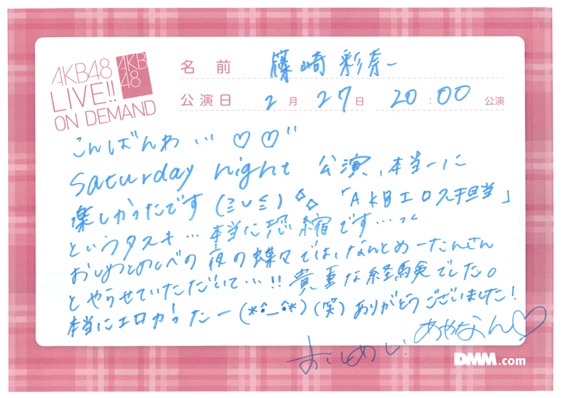 AKB48
LIVE!!
ON DEMAND
AKB
48
名前 篠崎彩奈
公演日 2月27日 20:00 公演
こんばんわ… ♡♡"
Saturday night 公演、本当ーに
楽しかったです (≧∪≦) 「AKBエロス担当」
というタスキ… 本当に恐縮です…
おしめしの夜の蝶々では、なんとめーたんさん
とやらせていただいて…!! 貴重な経験でした。
本当にエロかったー (*^_^*) (笑) ありがとうございました!
あやなん♡
DMM.com